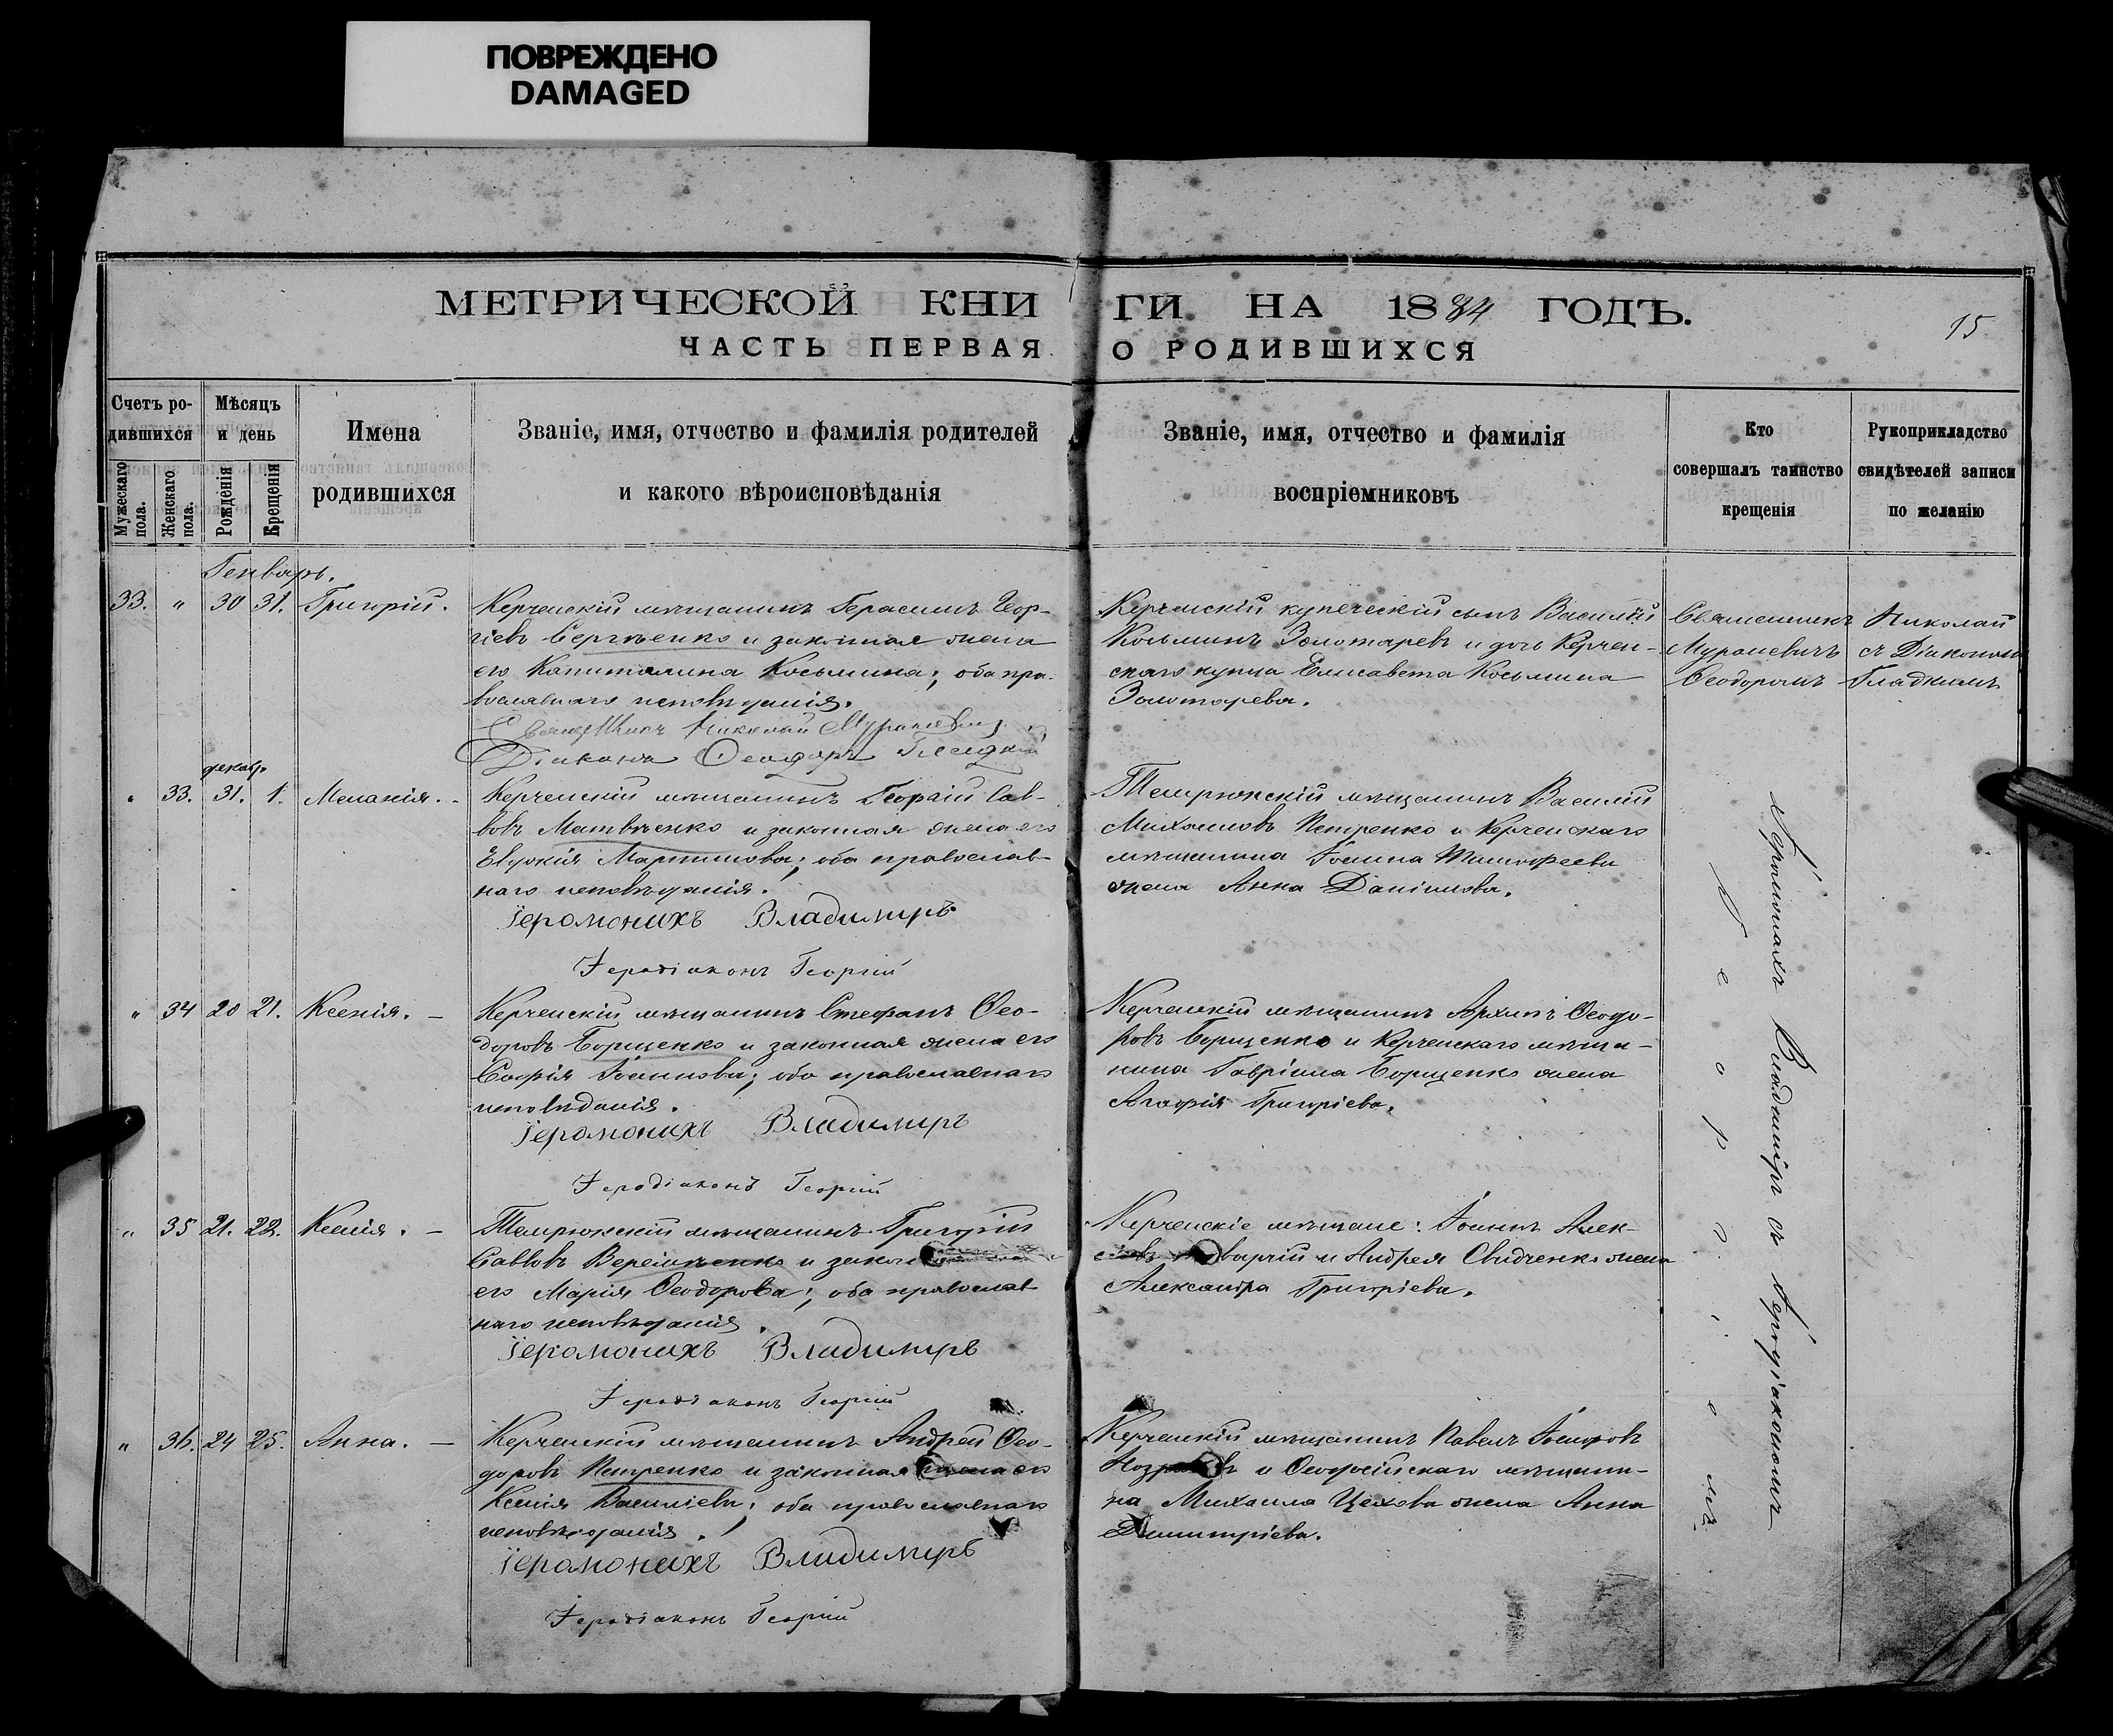 ПОВРЕЖДЕНО
DAMAGED
МЕТРИЧЕСКОЙ КНИГИ НА 1884 ГОДЪ.
15
ЧАСТЬ ПЕРВАЯ О РОДИВШИХСЯ
Счетъ ро-
дившихся
Мужескаго пола.
Женскаго пола.
Мѣсяцъ
и день
Рожденія
Крещенія
Имена
родившихся
Званіе, имя, отчество и фамилія родителей
и какого вѣроисповѣданія
Званіе, имя, отчество и фамилія
воспріемниковъ
Кто
совершалъ таинство
крещенія
Рукоприкладство
свидѣтелей записи
по желанію
Генварь.
33. " 30 31. Григорій.
Керченскій мѣщанинъ Герасимъ Геор-
гіевъ Сергѣенко и законная жена
его Капиталина Косьмина; оба пра-
вославнаго исповѣданія.
Священникъ Николай Мураневичъ
Діаконъ Ѳеодоръ Гладкій
Керченскій купеческій сынъ Василій
Косьминъ Золотаревъ и дочь Керчен-
скаго купца Елисавета Косьмина
Золотарева.
Священникъ Николай
Мураневичъ съ Діакономъ
Ѳеодоромъ Гладкимъ
декабр.
" 33. 31. 1. Меланія.
Керченскій мѣщанинъ Георгій Сав-
вовъ Матвѣенко и законная жена его
Евдокія Мартинова; оба православ-
наго исповѣданія.
Іеромонахъ Владимиръ
Іеродіаконъ Георгій
Темрюкскій мѣщанинъ Василій
Михаиловъ Петренко и Керченскаго
мѣщанина Іоанна Тимофеева
жена Анна Даніилова.
" 34 20 21. Ксенія. —
Керченскій мѣщанинъ Стефанъ Ѳео-
доровъ Борщенко и законная жена его
Софія Іоаннова; оба православнаго
исповѣданія.
Іеромонахъ Владимиръ
Іеродіаконъ Георгій
Керченскій мѣщанинъ Архипъ Ѳеодо-
ровъ Борщенко и Керченскаго мѣща-
нина Гавріила Борщенко жена
Агафія Григоріева.
" 35 21. 22. Ксенія. —
Темрюкскій мѣщанинъ Григорій
Саввовъ и закон
его Марія Ѳеодорова; оба православ-
наго исповѣданія.
Іеромонахъ Владимиръ
Іеродіаконъ Георгій
Керченскіе мѣщане: Іоаннъ Алек-
и Андрея Свидченко жена
Александра Григоріева.
" 36. 24 25. Анна. —
Керченскій мѣщанинъ Андрей Ѳео-
доровъ Петренко и законная жена его
Ксенія Василіева; оба православнаго
исповѣданія.
Іеромонахъ Владимиръ
Іеродіаконъ Георгій
Керченскій мѣщанинъ Павелъ
и Ѳеодосійскаго мѣщани-
на Михаила Цехова жена Анна
Димитріева.
Іеромонахъ Владимиръ съ Іеродіакономъ
Георгіемъ